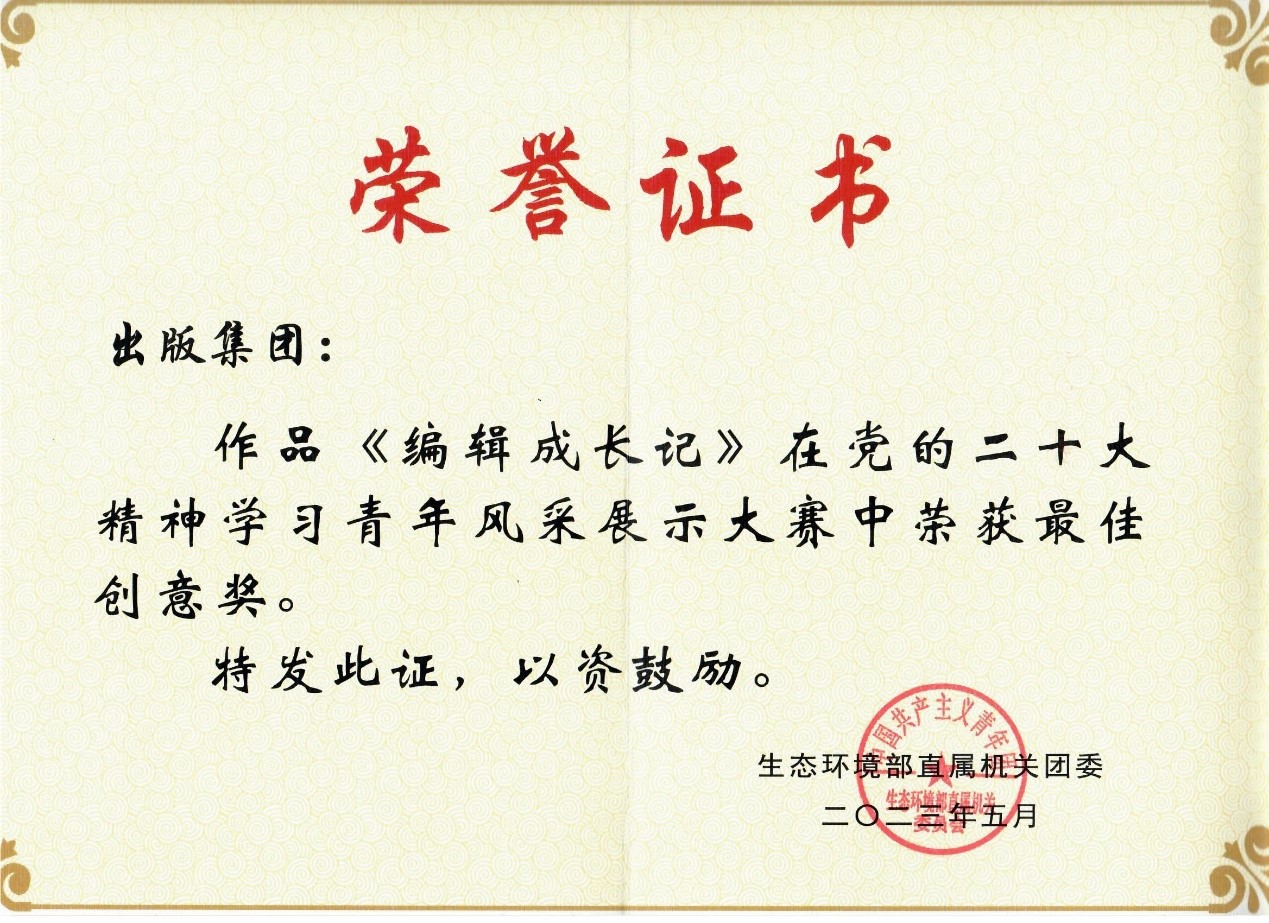 荣誉证书
出版集团：
作品《编辑成长记》在党的二十大
精神学习青年风采展示大赛中荣获最佳
创意奖。
特发此证，以资鼓励。
生态环境部直属机关团委
二〇二三年五月
中国共产主义青年团
生态环境部直属机关
委员会